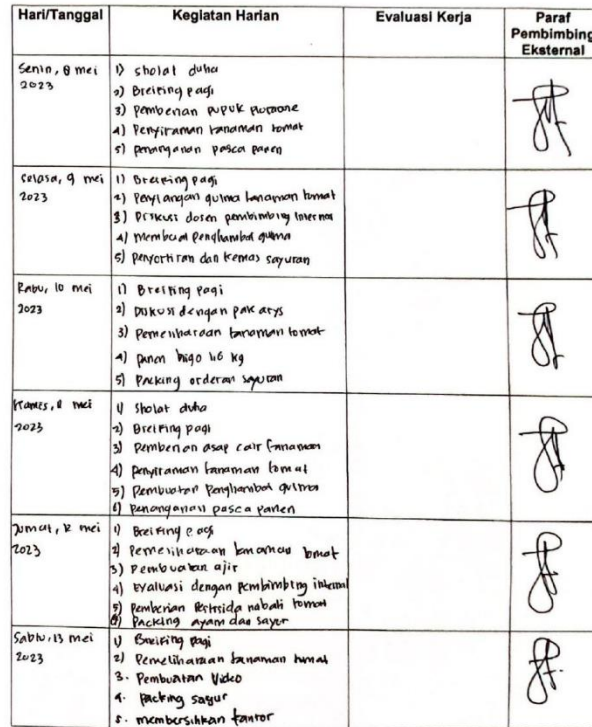 Hari/Tanggal Kegiatan Harian Evaluasi Kerja Paraf
Pembimbing
Eksternal
Senin, 8 mei
2023
1) sholat duha
2) Breifing pagi
3) Pemberian pupuk
4) Penyiraman tanaman tomat
5) penanganan pasca panen
selasa, 9 mei
2023
1) Breifing pagi
2) Penyiangan gulma tanaman tomat
3) Diskusi dosen pembimbing internal
4) Membuat penghambat gulma
5) penyortiran dan kemas sayuran
Rabu, 10 mei
2023
1) Breifing pagi
2) Diskusi dengan pak arys
3) Pemeliharaan tanaman tomat
4) panen kg
5) Packing orderan sayuran
Kamis, 11 mei
2023
1) Sholat duha
2) Breifing pagi
3) Pemberian asap cair tanaman
4) penyiraman tanaman tomat
5) Pembuatan Penghambat gulma
6) penanganan pasca panen
Jumat, 12 mei
2023
1) Breifing pagi
2) Pemeliharaan tanaman tomat
3) Pembuatan ajir
4) Evaluasi dengan pembimbing internal
5) Pemberian nabati tomat
6) Packing ayam dan sayur
Sabtu, 13 mei
2023
1) Breifing pagi
2) Pemeliharaan tanaman tomat
3. Pembuatan Video
4. packing sayur
5. membersihkan kantor